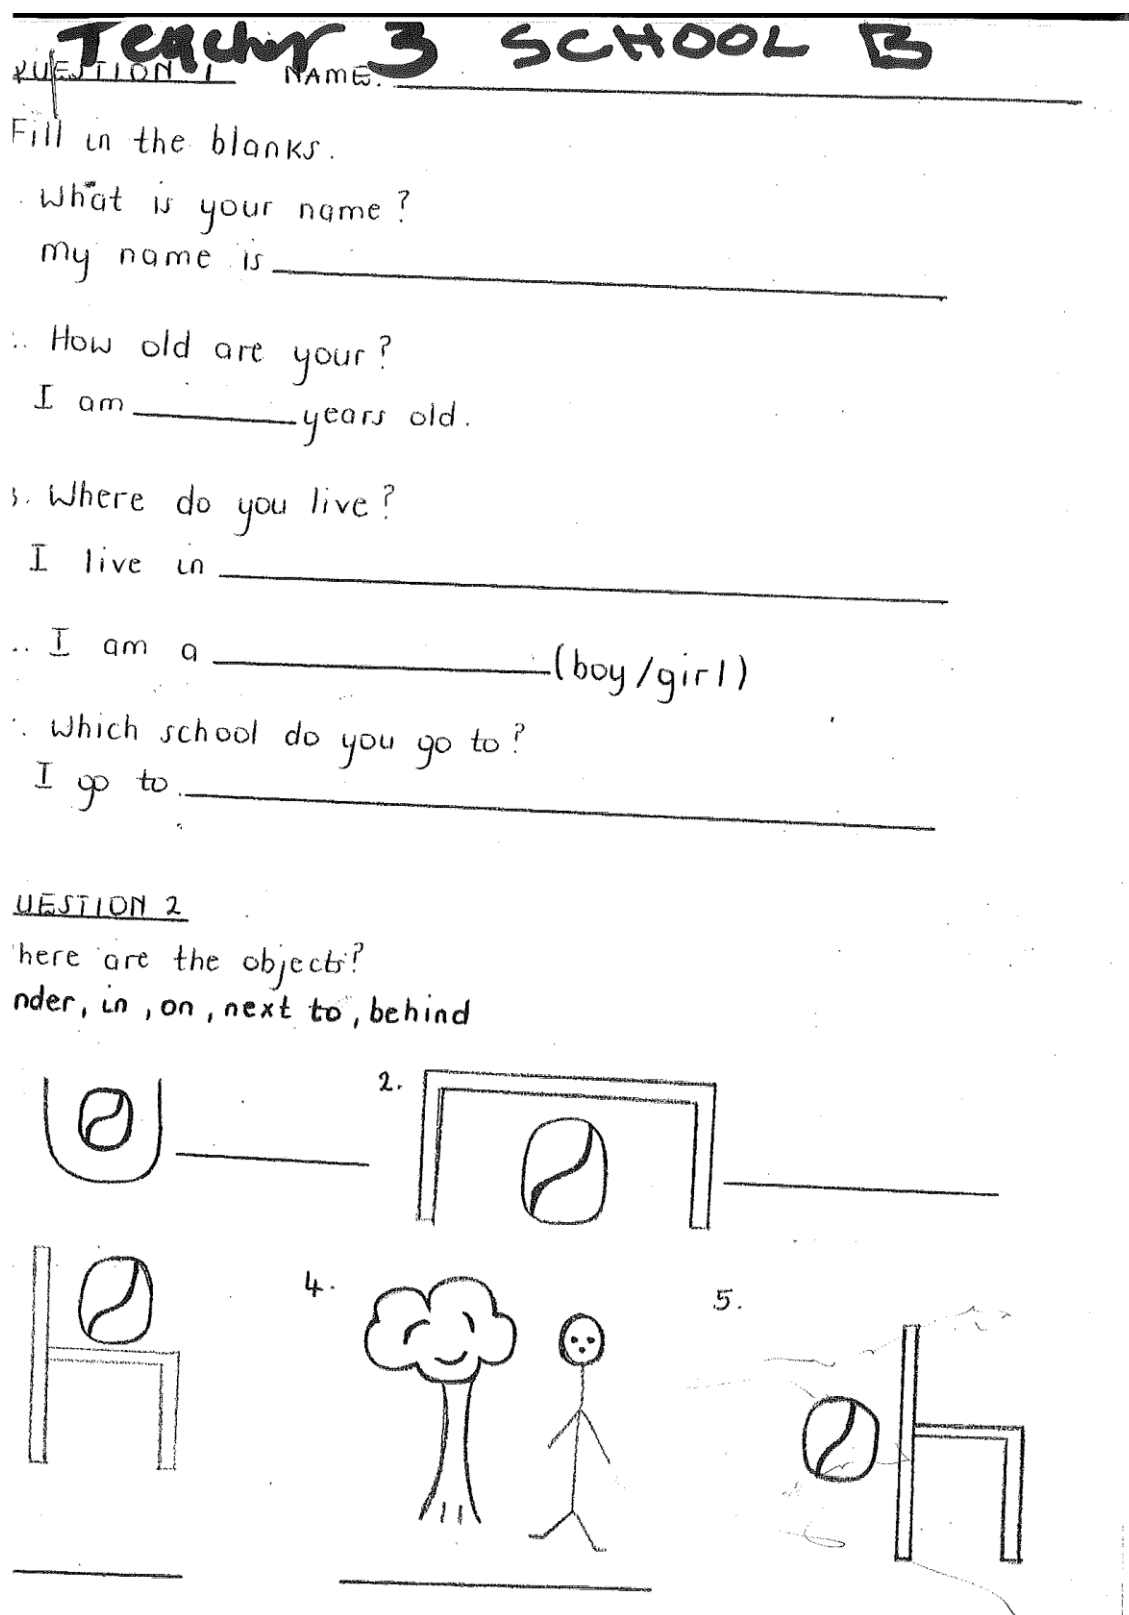 Teacher 3 SCHOOL B
QUESTION 1 NAME:
Fill in the blanks.
What is your name?
my name is
How old are your?
I am years old.
3. Where do you live?
I live in
I am a (boy/girl)
Which school do you go to?
I go to
UESTION 2
here are the objects?
nder, in, on, next to, behind
2.
4.
5.